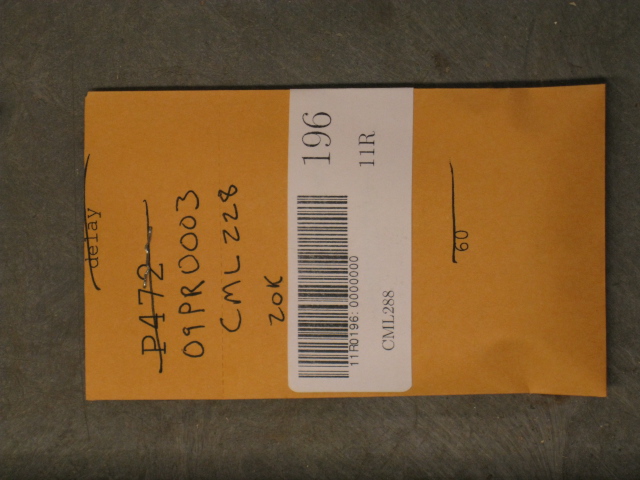 delay
P472
09PR0003
CML228
20K
196
11R
11R0196:0000000
CML288
60